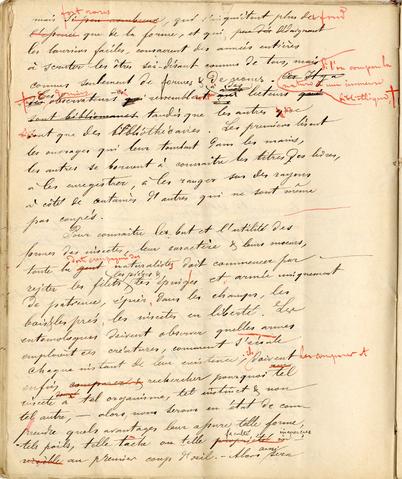 sont rares
mais si peu nombreux, qui s'inquiètent plus du fond
que de la forme, et qui, peu
les lauriers faciles, consacrent des années entières
à scruter les êtres soi-disant connus de tous, mais
connus seulement de formes & de noms. si l'on compare la
nature à une immense
bibliothèque
observateurs ressemblent lecteurs
sont bibliomanes tandis que les autres
sont que des bibliothécaires. Les premiers lisent
les ouvrages qui leur tombent dans les mains,
les autres se bornent à connaître les titres des livres,
à les enregistrer, à les ranger sur des rayons
à côté de centaines d'autres qui ne sont même
pas coupés.
Pour connaître les but et l'utilité des
formes des insectes, leur caractère & leurs moeurs,
tout naturaliste doit commencer par
rejeter les filets, les pièges & les épingles et, armée uniquement
de patience, épier, dans les champs, les
près, les insectes en liberté. Les
entomologues doivent observer quelles armes
emploient ces créatures, comment
chaque instant de leur existence, ils doivent les comparer &
enfin, comparer & rechercher pourquoi tel
insecte a tel organisme, tel instinct & non
tel autre, — alors nous serons en état de com
prendre quels avantages leur assure telle forme,
tels poils, telle tache ou telle faculté
visible au premier coup d'oeil. — Alors, sera